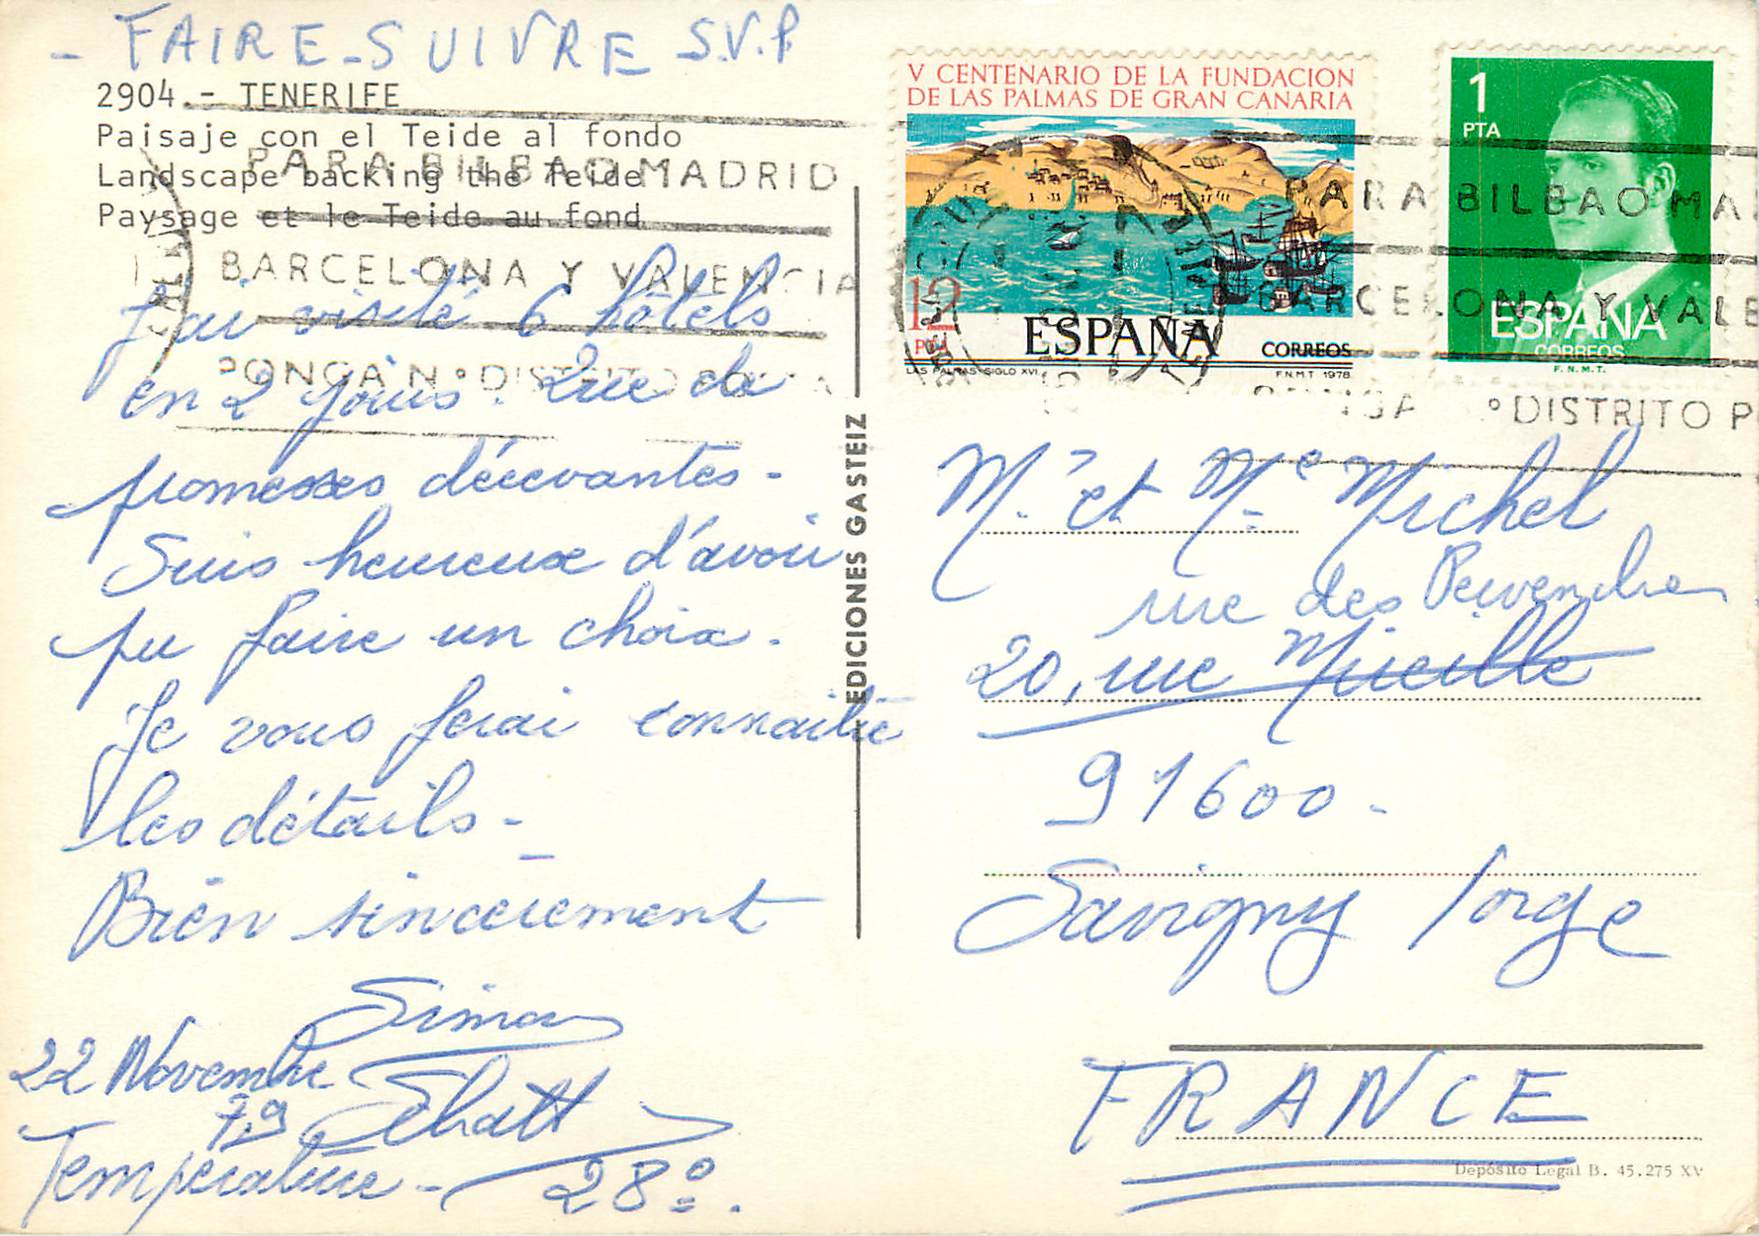 - FAIRE-SUIVRE S.V.P
2904.- TENERIFE
Paisaje con el Teide al fondo
Landscape backing the Teide
Paysage et le Teide au fond
PARA BILBAO MADRID
BARCELONA Y VALENCIA
PONGA N.º DISTRITO POSTAL
J'ai visité 6 hôtels
en 2 jours. Que de
promesses décevantes -
Suis heureuse d'avoir
pu faire un choix.
Je vous ferai connaître
les détails -
Bien sincèrement
Simon
Schatt
22 Novembre
79
Température - 28º.
EDICIONES GASTEIZ
V CENTENARIO DE LA FUNDACION
DE LAS PALMAS DE GRAN CANARIA
12
PTA
ESPAÑA
CORREOS
LAS PALMAS-SIGLO XVI
F.N.M.T. 1978
1
PTA
ESPAÑA
CORREOS
F.N.M.T.
PARA BILBAO MA
BARCELONA Y VALE
PONGA Nº DISTRITO P
Mr et Me Michel
rue des Pervenches
20, rue Mireille
91600 -
Savigny s/orge
FRANCE
Depósito Legal B. 45.275 XV